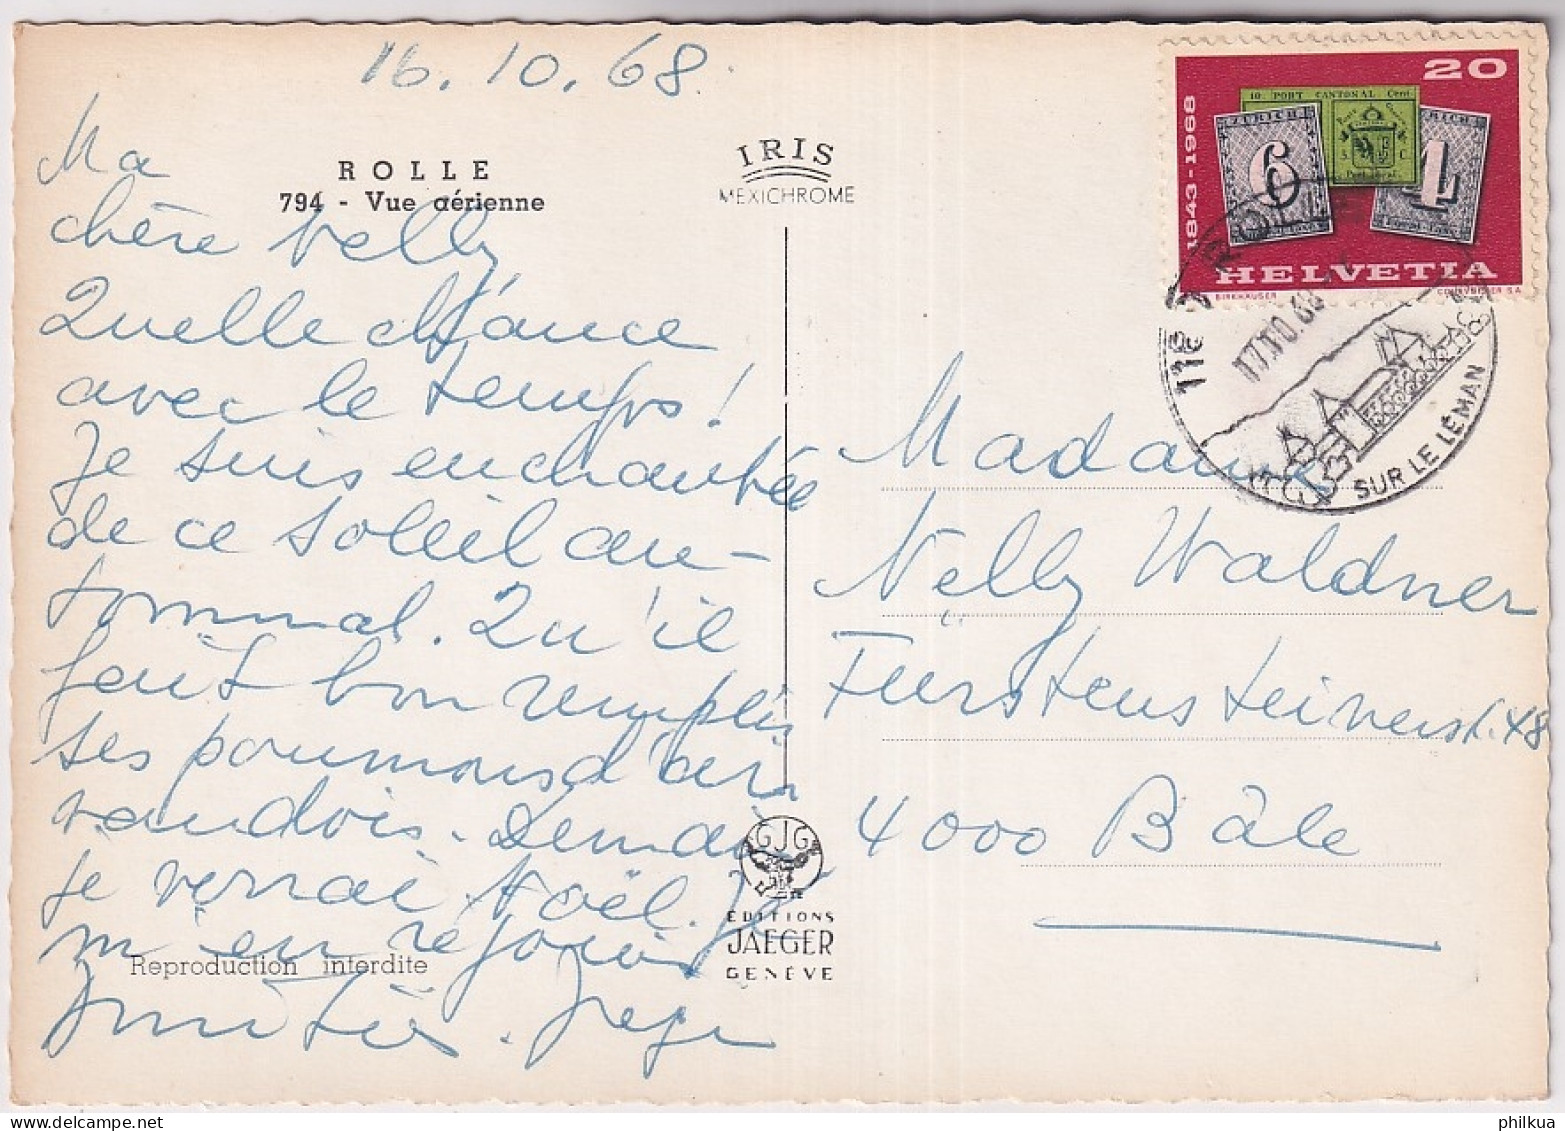 16.10.68.
ROLLE
794 - Vue aérienne
IRIS
MEXICHROME
Ma
chère Nelly
Quelle chance
avec le temps!
Je suis enchantée
de ce soleil au-
tommal. Qu'il
fait bon remplir
ses poumons d'air
vaudois. Demain
je verrai Noël. Je
m'en réjouis
Amitiés.
Reproduction interdite
GJG
ÉDITIONS
JAEGER
GENÈVE
20
1843-1968
10. PORT CANTONAL Cent.
ZÜRICH
6
ZÜRICH
4
5 C
HELVETIA
BIRKHÄUSER
COURVOISIER S.A.
ROLLE
17.10.68
SUR LE LÉMAN
Madame
Nelly Waldner
Fürstensteinerst. 48
4000 Bâle
philkua.com